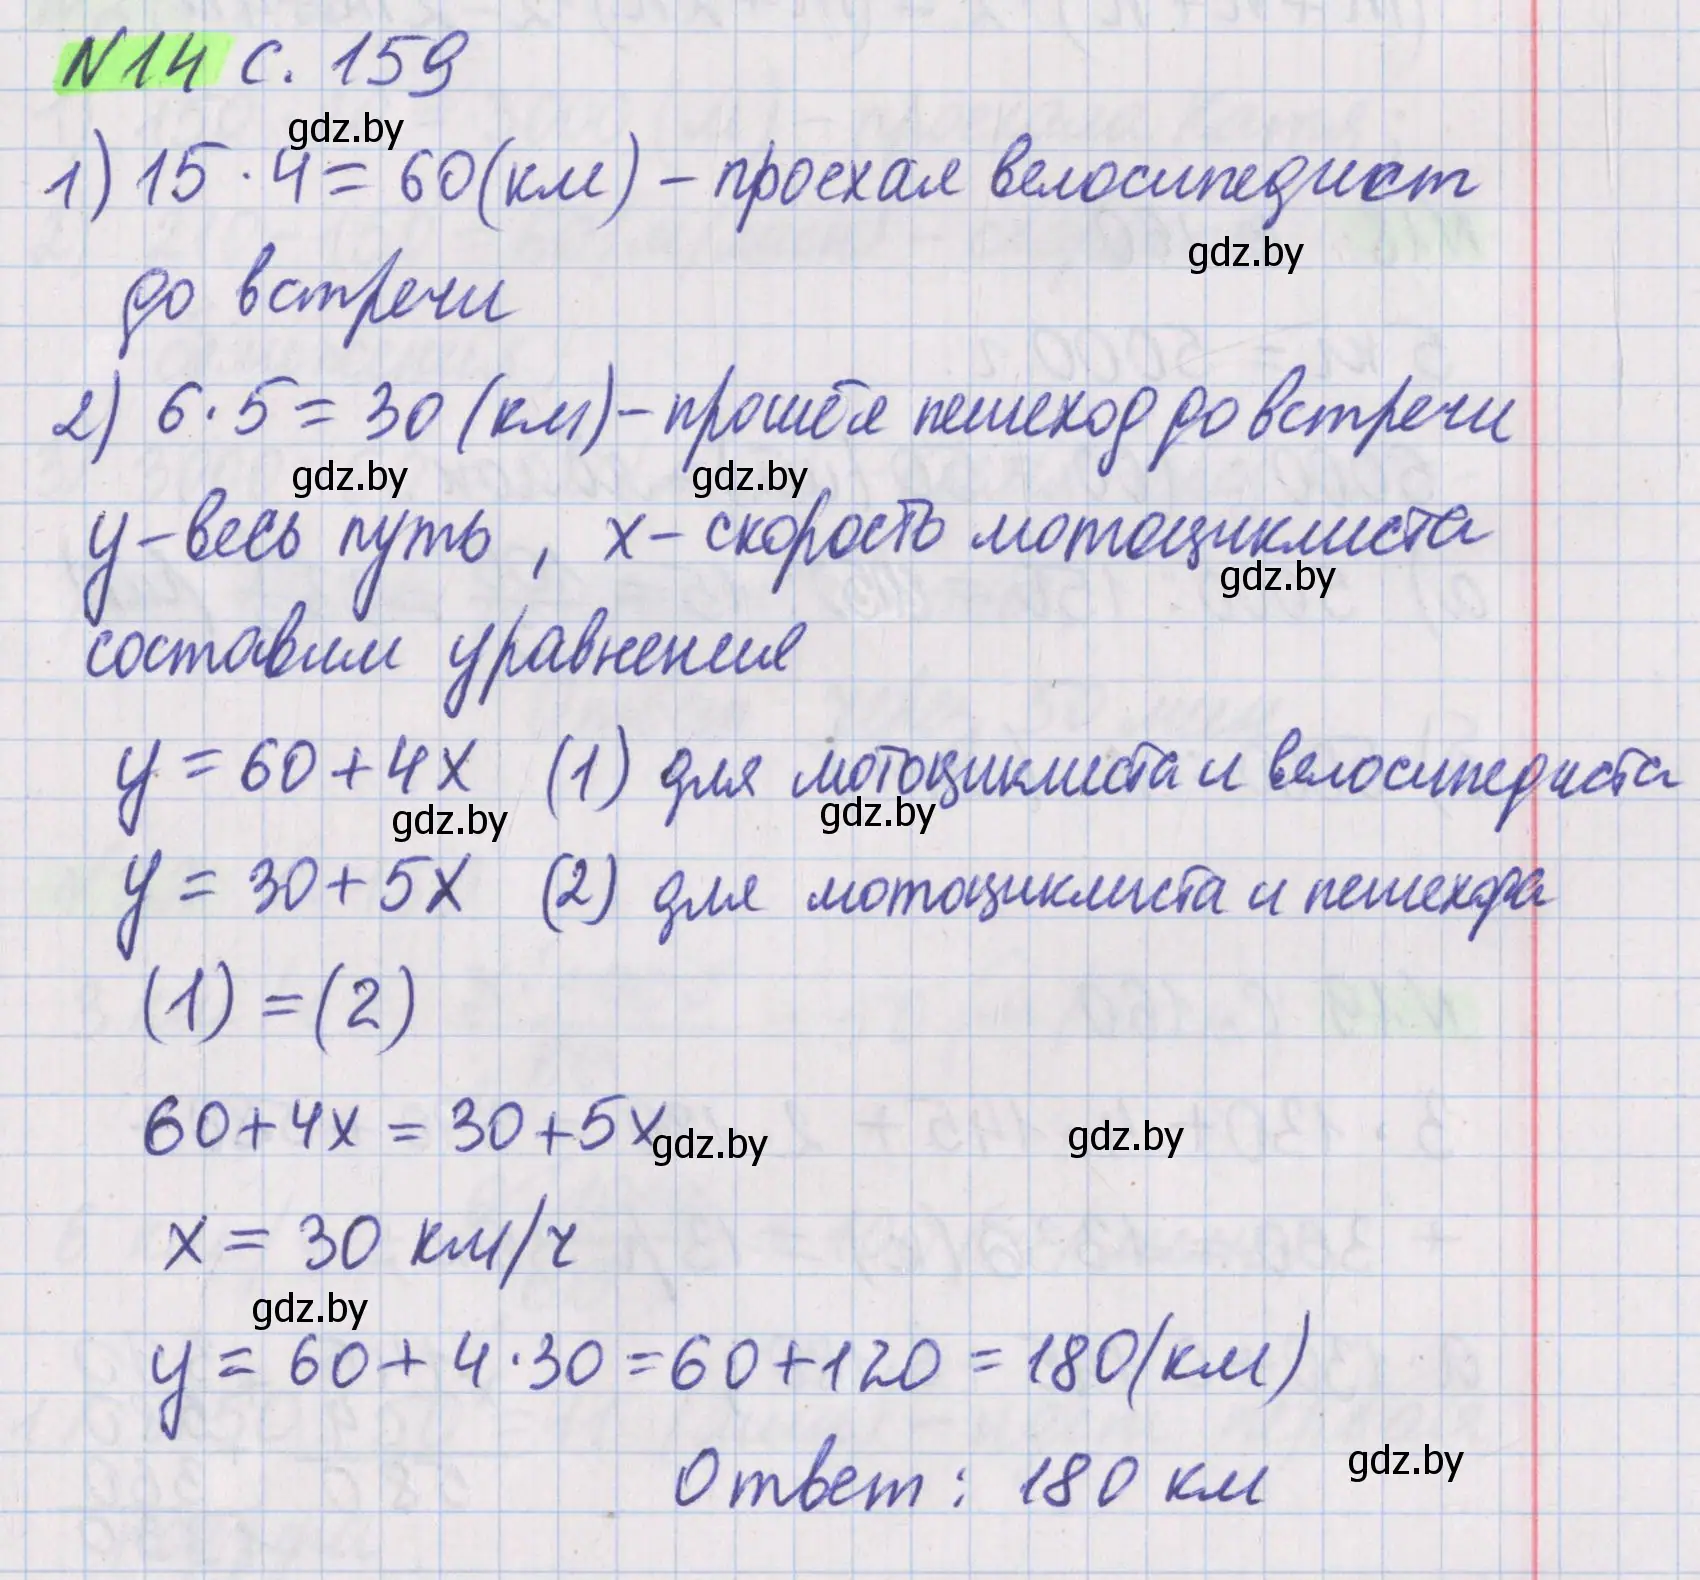 N14 с. 159
gdz.by
1) 15 · 4 = 60 (км) – проехал велосипедист
gdz.by
до встречи
2) 6 · 5 = 30 (км) – прошёл пешеход до встречи
gdz.by gdz.by
y – весь путь, x – скорость мотоциклиста
gdz.by
составим уравнения
y = 60 + 4x (1) для мотоциклиста и велосипедиста
gdz.by gdz.by
y = 30 + 5x (2) для мотоциклиста и пешехода
(1) = (2)
60 + 4x = 30 + 5x
gdz.by gdz.by
x = 30 км/ч
gdz.by
y = 60 + 4 · 30 = 60 + 120 = 180 (км)
Ответ: 180 км
gdz.by